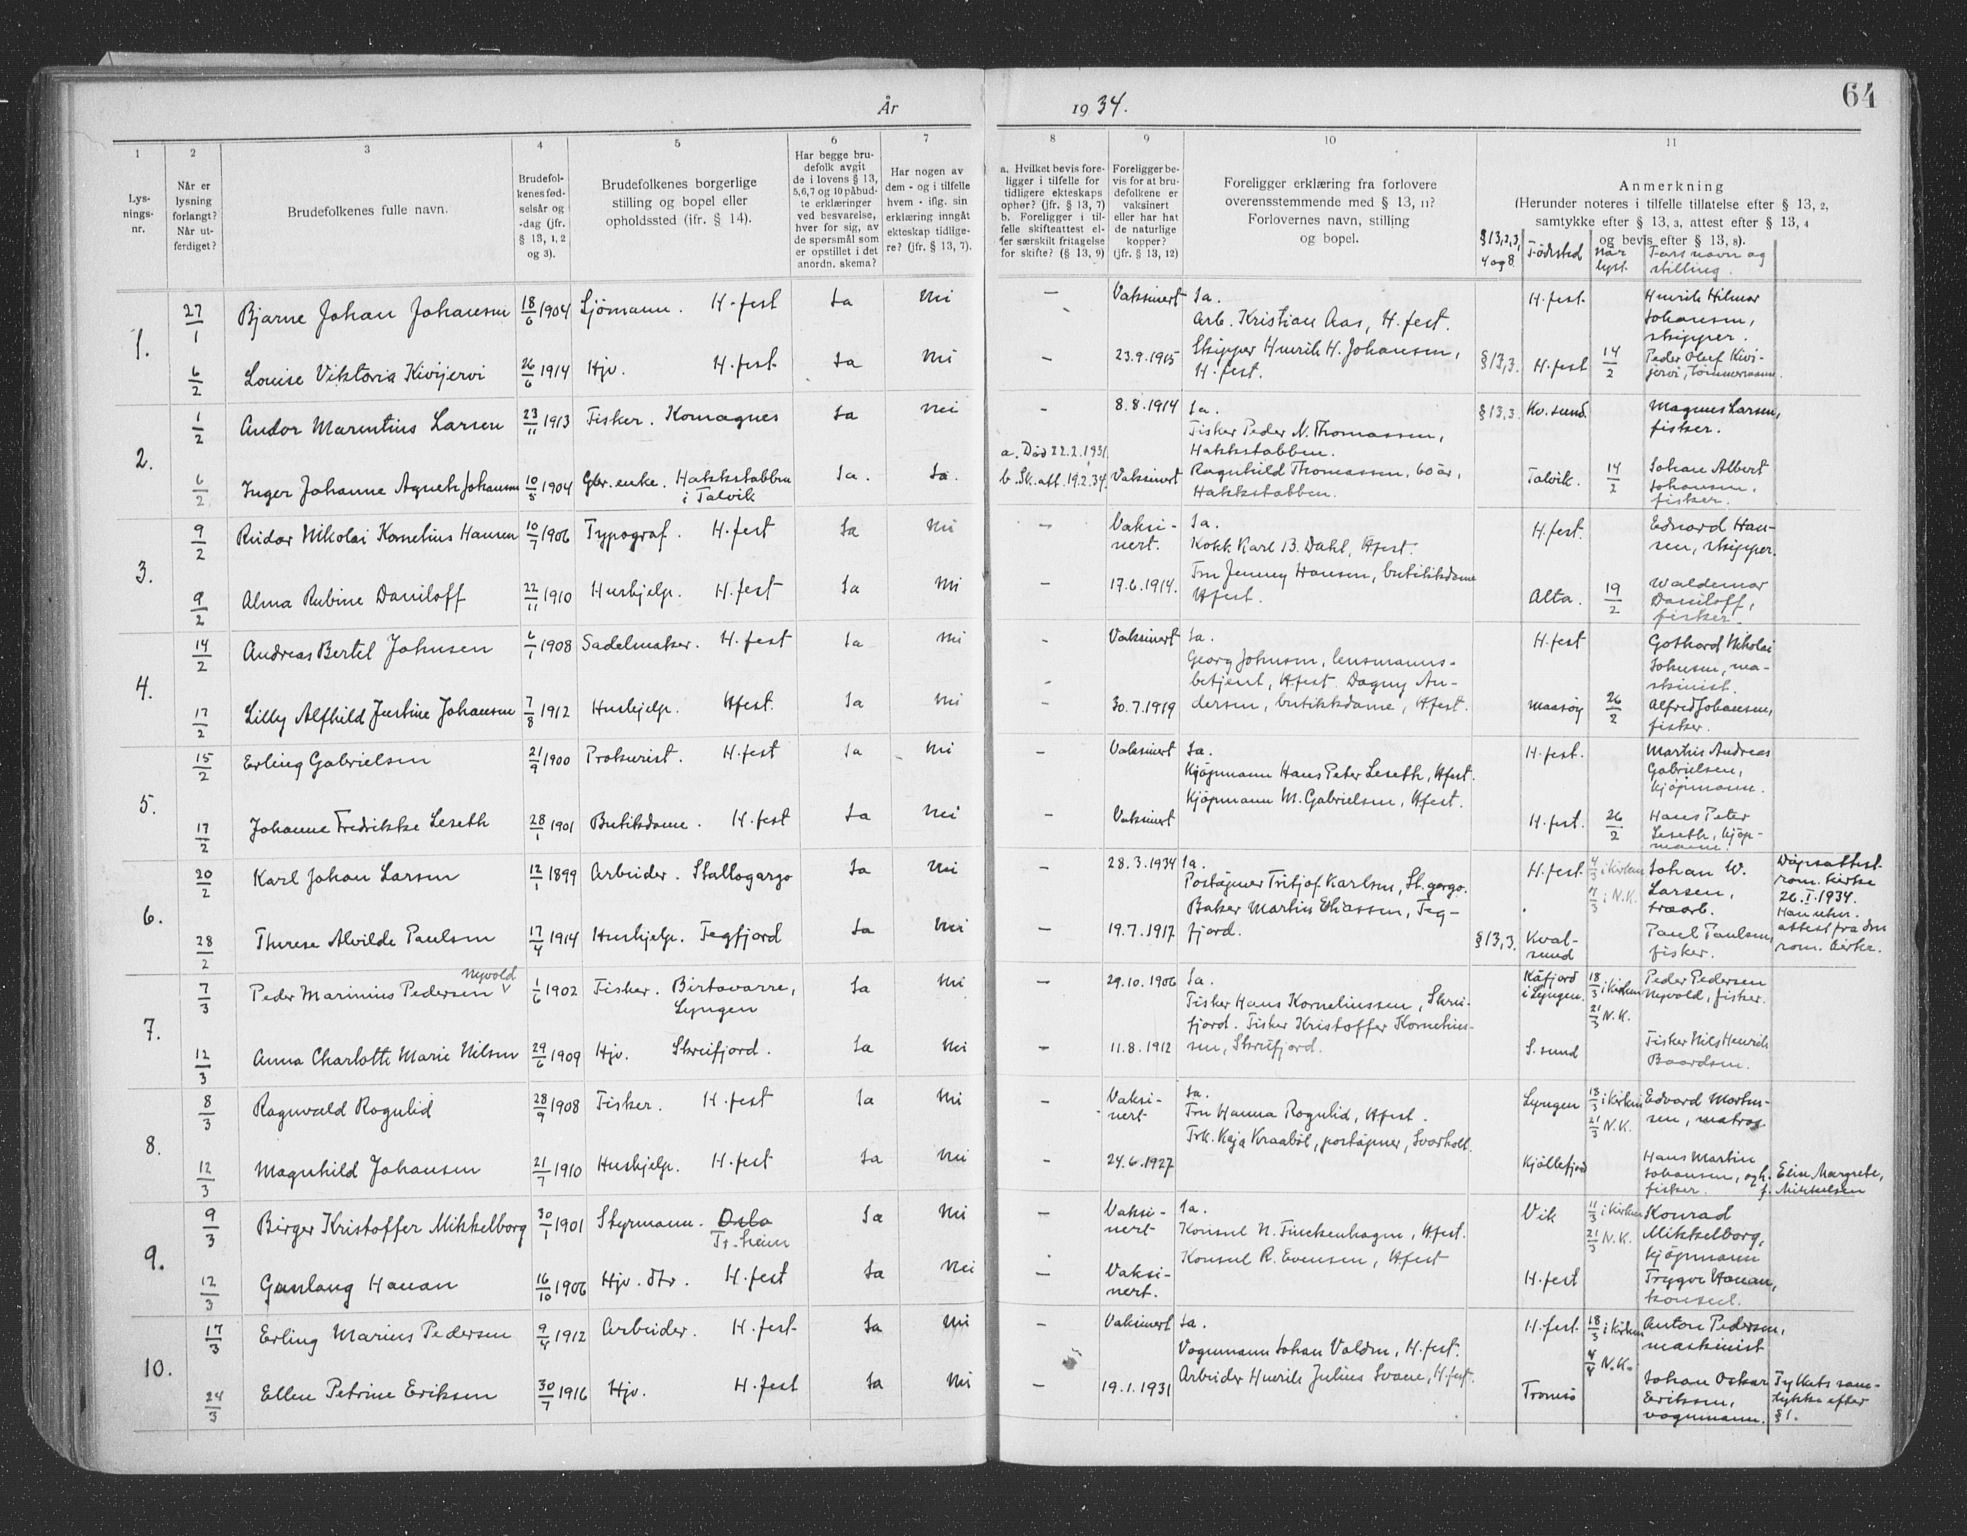 64
År 1934.
1 2 3 4 5 6 7 8 9 10 11
Lys-
nings-
nr.
Når er
lysning
forlangt?
Når ut-
ferdiget?
Brudefolkenes fulle navn.
Brudefol-
kenes fød-
selsår og
-dag (jfr.
§ 13, 1, 2
og 3).
Brudefolkenes borgerlige
stilling og bopel eller
opholdssted (ifr. § 14).
Har begge bru-
defolk avgit
de i lovens § 13,
5,6,7 og 10 påbud-
te erklæringer
ved besvarelse,
hver for sig, av
de spørsmål som
er opstillet i det
anordn. skema?
Har nogen av
dem - og i tilfelle
hvem - iflg. sin
erklæring inngått
ekteskap tidlige-
re? (jfr. § 13, 7).
a. Hvilket bevis fore-
ligger i tilfelle for
tidligere ekteskaps
ophør? (jfr. § 13, 7)
b. Foreligger i til-
felle skifteattest el-
ler særskilt fritagelse
for skifte? (§ 13, 9)
Foreligger be-
vis for at bru-
defolkene er
vaksinert
eller har hat
de naturlige
kopper?
(jfr. § 13, 12)
Foreligger erklæring fra forlovere
overensstemmende med § 13, 11?
Forlovernes navn, stilling
og bopel.
Anmerkning
(Herunder noteres i tilfelle tillatelse efter § 13, 2,
samtykke efter § 13, 3, attest efter § 13, 4
og bevis efter § 13, 8).
§ 13,2,3, 4 og 8. Fødested Når lyst. Fars navn og stilling.
1. 27/1 Bjarne Johan Johansen 18/6 1904 Sjømann. H-fest Ja Nei — Vaksinert Ja. H.fest. Henrik Hilmar
Arb. Kristian Aas, H.fest. Johansen,
skipper.
6/2 Louise Viktoria Kivijervi 26/6 1914 Hjv. H.fest. Ja Nei — 23.9.1915 Skipper Henrik H. Johansen, § 13,3. H.fest 14/2 Peder Oluf Kivi-
H.fest. jervi, tømmermann.
2. 1/2 Andor Marentius Larsen 23/11 1913 Fisker. Komagnes Ja Nei — 8.8.1914 Ja. § 13,3. Kv.sund. Magnus Larsen,
Fisker Peder N. Thomassen, fisker.
a. Død 22.2.1931. Hakkstabben.
6/2 Inger Johanne Agnete Johansen 10/5 1904 Gbr. enke. Hakkstabben Ja. Ja. b. Sk.att. 19.2.34. Vaksinert Ragnhild Thomassen, 60 år, Talvik. 14/2 Johan Albert
i Talvik Hakkstabben. Johansen,
fisker.
3. 9/2 Reidar Nikolai Kornelius Hansen 10/7 1906 Typograf. H.fest Ja Nei — Vaksi- Ja. H.fest. Edvard Han-
nert. Kokk Karl B. Dahl, Hfest. sen, skipper.
9/2 Alma Rubine Daniloff 22/11 1910 Hushjelp. H.fest Ja Nei — 17.6.1914. Fru Jenney Hansen, butikkdame Alta. 19/2 Waldemar
Hfest. Daniloff,
fisker.
4. 14/2 Andreas Bertel Johnsen 6/1 1908 Sadelmaker. H.fest Ja Nei — Vaksinert Ja. H.fest Gothard Nikolai
Georg Johnsen, lensmanns- Johnsen, ma-
betjent, Hfest. Dagny An- skinist.
17/2 Lilly Alfhild Justine Johansen 7/8 1912 Hushjelp. Hfest. Ja Nei — 30.7.1919 dersen, butikkdame, Hfest. Maasøy 26/2 Alfred Johansen,
fisker.
5. 15/2 Erling Gabrielsen 21/9 1900 Prokurist. H.fest Ja Nei — Vaksinert Ja. H.fest. Martin Andreas
Kjøpmann Hans Peter Leseth, Hfest. Gabrielsen,
Kjøpmann M. Gabrielsen, Hfest. kjøpmann.
17/2 Johanne Fredrikke Leseth 28/1 1901 Butikdame. H.fest Ja Nei — Vaksinert H.fest. 26/2 Hans Peter
Leseth, kjøp-
mann.
6. 20/2 Karl Johan Larsen 12/1 1899 Arbeider. Stallogargo Ja Nei — 28.3.1934 Ja. H.fest. 4/3 i kirken Johan W. Dåpsattest
Poståpner Fritjof Karlsen, St.gargo. 7/3 i N.K. Larsen, rom. kirke
Baker Martin Eliassen, Teg- traarb. 26.I.1934.
28/2 Therese Alvilde Paulsen 17/4 1914 Hushjelp. Tegfjord Ja Nei — 19.7.1917 fjord. § 13,3. Kval- Paul Paulsen, attest fra den
sund fisker. rom. kirke.
7. 7/3 Peder Marinius Pedersen Nyvold 1/6 1902 Fisker. Birtavarre, Ja Nei — 29.10.1906 Ja. Kåfjord 18/3 i kirken Peder Pedersen
Lyngen Fisker Hans Korneliussen, Skrei- i Lyngen. 21/3 N.K. Nyvold, fisker.
fjord. Fisker Kristoffer Kornelius-
12/3 Anna Charlotte Marie Nilsen 29/6 1909 Hjv. Skreifjord. Ja Nei — 11.8.1912 sen, Skreifjord. S.sund Fisker Nils Henrik
Baardsen.
8. 8/3 Ragnvald Rognlid 28/9 1908 Fisker. H.fest Ja Nei — Vaksi- Ja. Lyngen 18/3 i kirken Edvard Martin-
nert Fru Hanna Rognlid, Hfest. 21/3 N.K. sen, matros
Frk. Kaja Kraabøl, poståpner, Svarholt.
12/3 Magnhild Johansen 21/7 1910 Hushjelp. H.fest Ja Nei — 24.6.1927 Kjøllefjord Hans Martin
Johansen, og h. Elen Margrete,
fisker. f. Mikkelsen
9. 9/3 Birger Kristoffer Mikkelborg 30/1 1901 Styrmann. Oslo Ja Nei — Vaksi- Ja. Vik 11/3 i kirken Konrad
Tr.heim nert Konsul N. Finckenhagen, Hfest. 21/3 N.K. Mikkelborg,
Konsul R. Evensen, Hfest kjøpmann
12/3 Gunlaug Hauan 16/10 1906 Hjv. dtr. H.fest Ja Nei — Vaksi- H.fest Trygve Hauan,
nert. konsul.
10. 17/3 Erling Marius Pedersen 9/4 1912 Arbeider. H.fest Ja Nei — Vaksinert Ja. H.fest. 18/3 i kirken Anton Pedersen,
Vognmann Johan Valdm, H.fest. 4/4 N.K. maskinist
24/3 Ellen Petrine Eriksen 30/7 1916 Hjv. H.fest Ja Nei — 19.1.1931 Arbeider Henrik Julius Svane, H.fest. Tromsø Johan Oskar Fylkets sam-
Eriksen, tykke efter
vognmann. § 1.